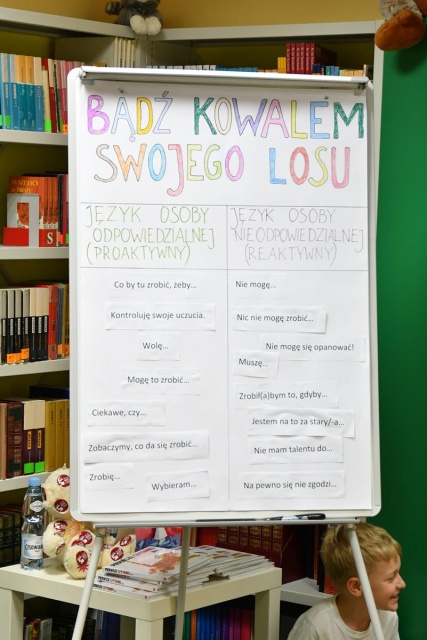 BĄDŹ KOWALEM
SWOJEGO LOSU
JĘZYK OSOBY
ODPOWIEDZIALNEJ
(PROAKTYWNY)
Co by tu zrobić, żeby...
Kontroluję swoje uczucia.
Wolę...
Mogę to zrobić...
Ciekawe, czy...
Zobaczymy, co da się zrobić...
Zrobię...
Wybieram...
JĘZYK OSOBY
NIEODPOWIEDZIALNEJ
(REAKTYWNY)
Nie mogę...
Nic nie mogę zrobić...
Nie mogę się opanować!
Muszę...
Zrobił(a)bym to, gdyby...
Jestem na to za stary/-a...
Nie mam talentu do...
Na pewno się nie zgodzi...